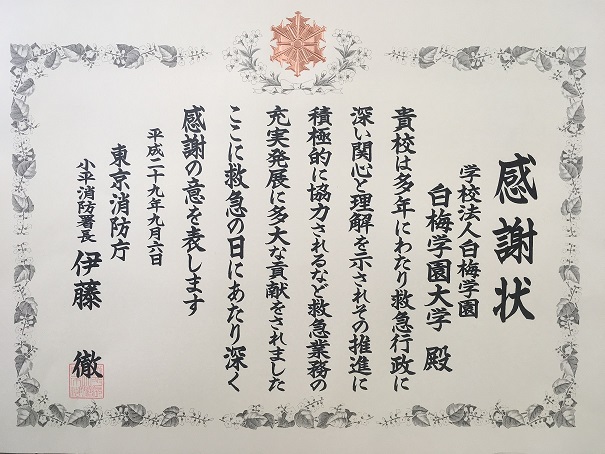 感謝状
学校法人白梅学園
白梅学園大学 殿
貴校は多年にわたり救急行政に
深い関心と理解を示されその推進に
積極的に協力されるなど救急業務の
充実発展に多大な貢献をされました
ここに救急の日にあたり深く
感謝の意を表します
平成二十九年九月六日
東京消防庁
小平消防署長 伊藤 徹